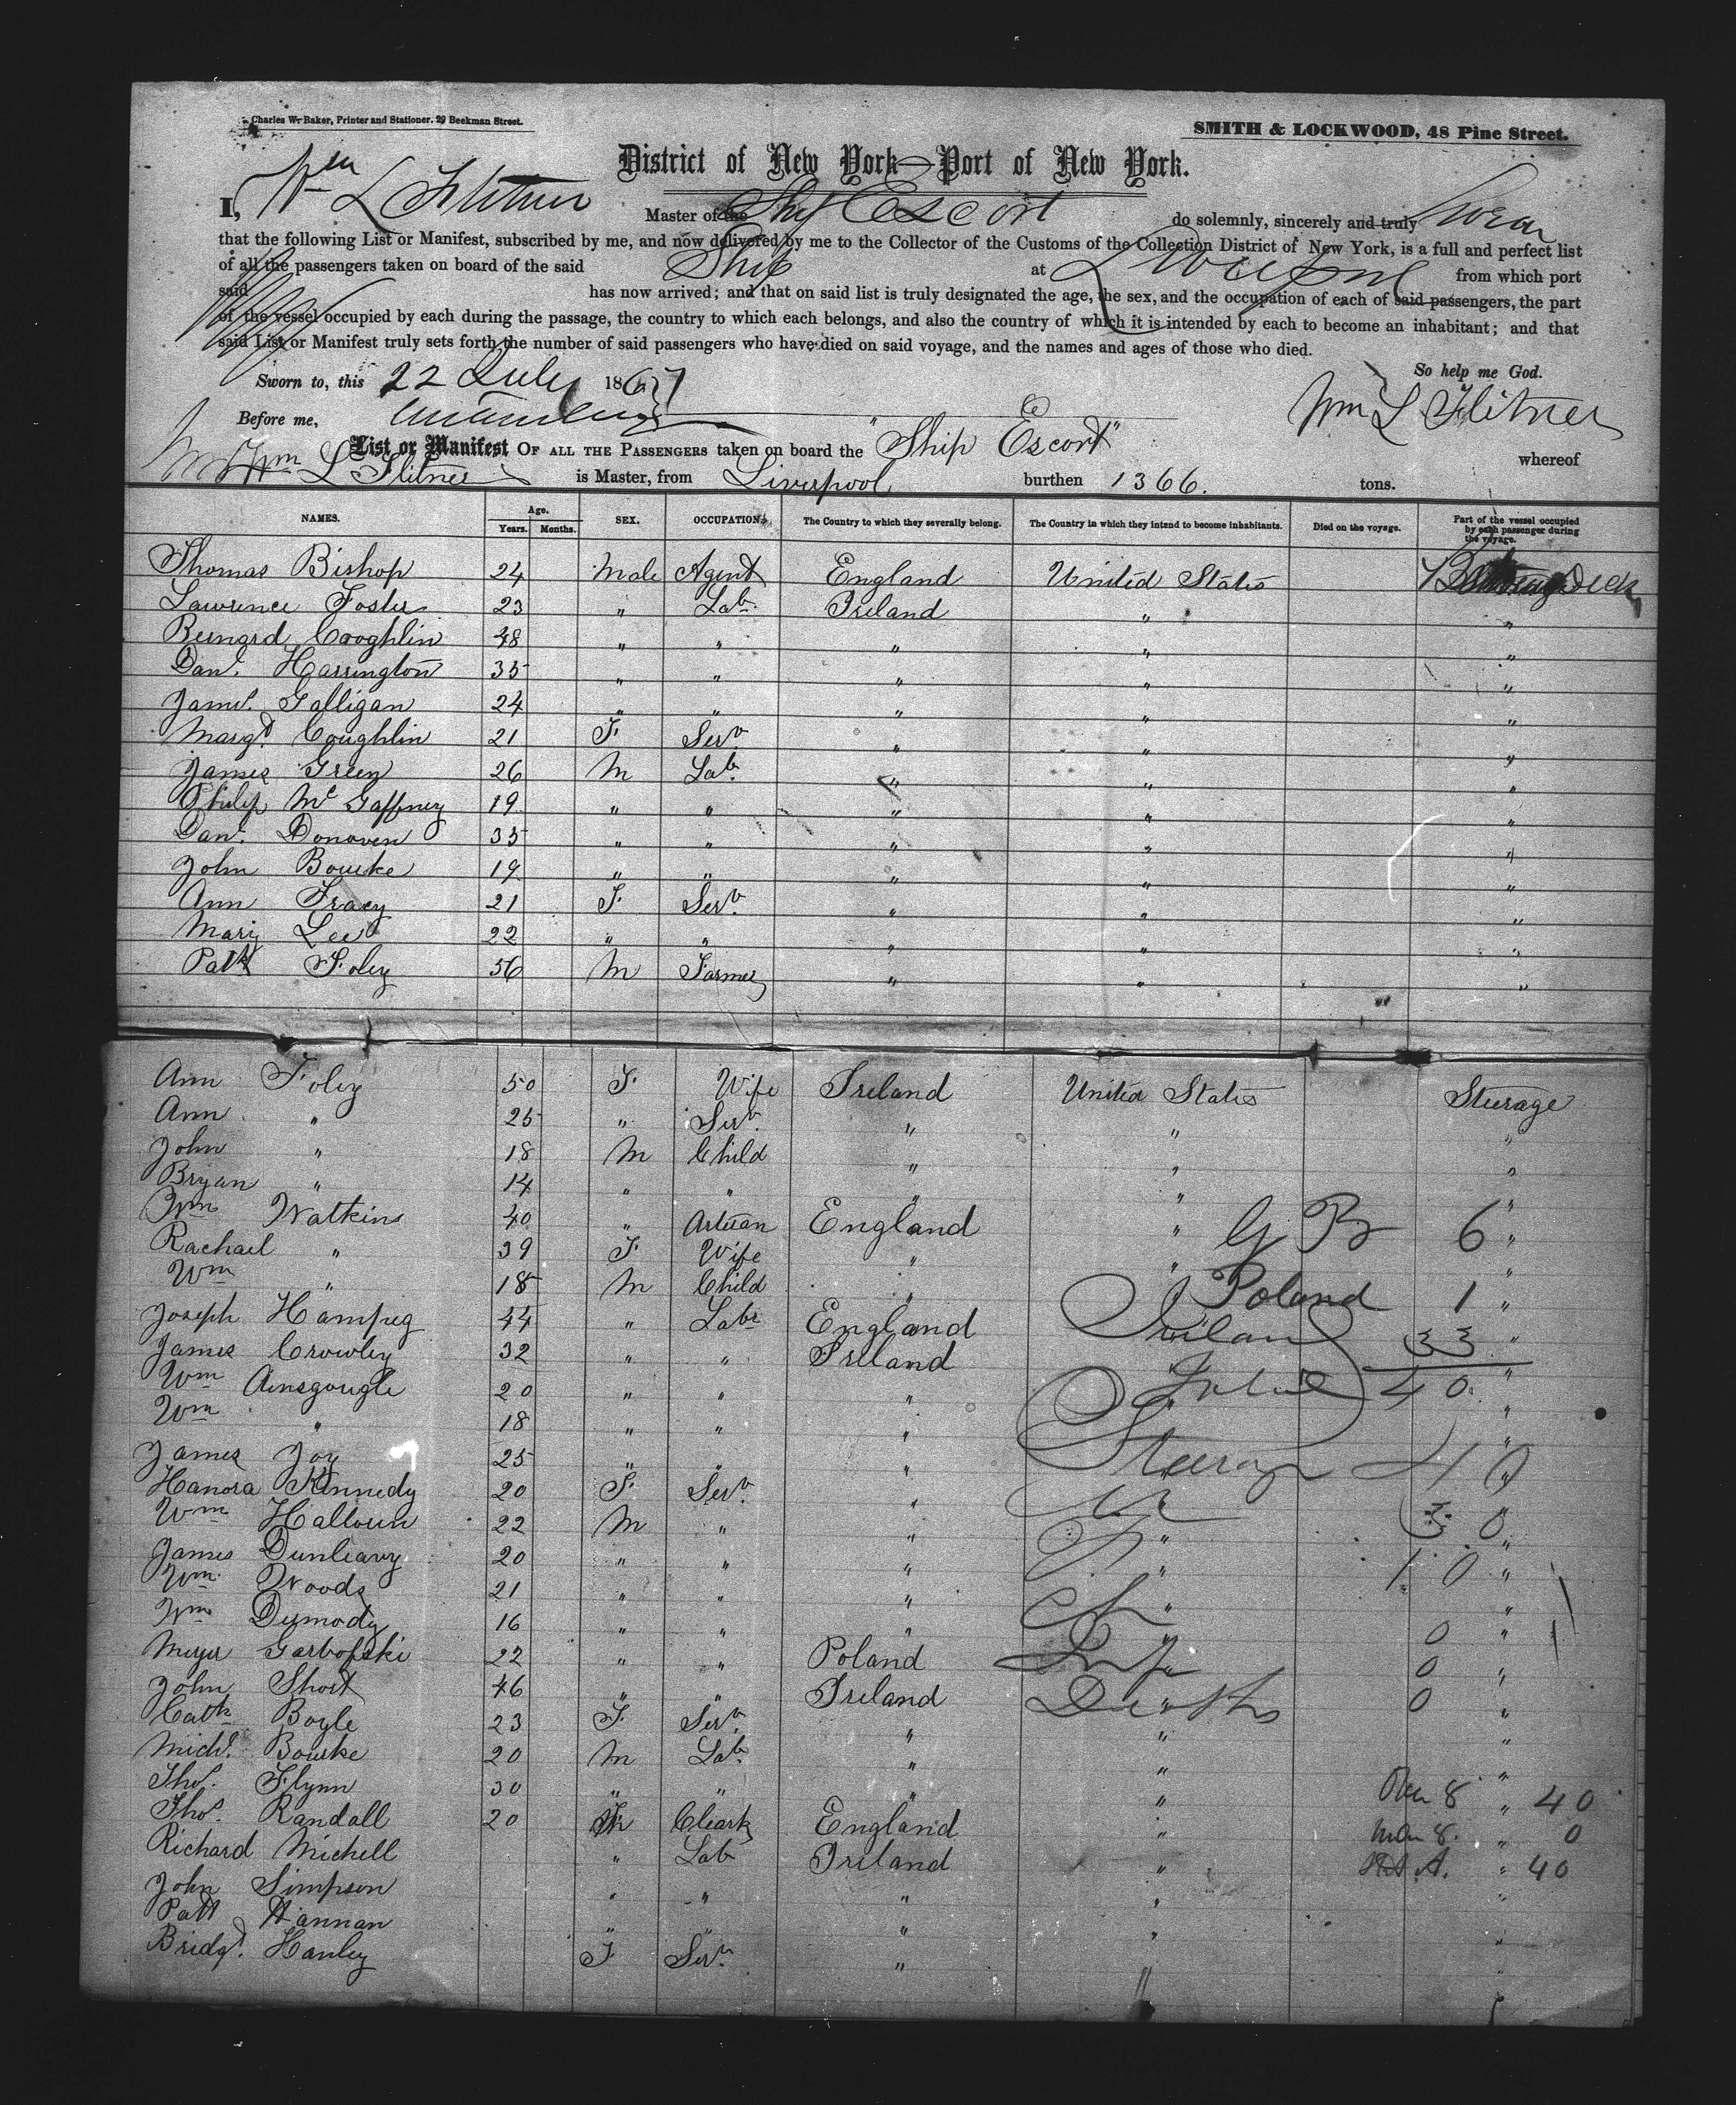 Charles W. Baker, Printer and Stationer. 29 Beekman Street.
SMITH & LOCKWOOD, 48 Pine Street.
District of New York—Port of New York.
I, Wm L Flitner Master of the Ship Escort do solemnly, sincerely and truly swear
that the following List or Manifest, subscribed by me, and now delivered by me to the Collector of the Customs of the Collection District of New York, is a full and perfect list
of all the passengers taken on board of the said Ship at Liverpool from which port
said has now arrived; and that on said list is truly designated the age, the sex, and the occupation of each of said passengers, the part
of the vessel occupied by each during the passage, the country to which each belongs, and also the country of which it is intended by each to become an inhabitant; and that
said List or Manifest truly sets forth the number of said passengers who have died on said voyage, and the names and ages of those who died.
So help me God.
Sworn to, this 22 July 1867
Wm L Flitner
Before me,
List or Manifest OF ALL THE PASSENGERS taken on board the "Ship Escort" whereof
Wm L Flitner is Master, from Liverpool burthen 1366. tons.
NAMES. Age. Years. Months. SEX. OCCUPATION. The Country to which they severally belong. The Country in which they intend to become inhabitants. Died on the voyage. Part of the vessel occupied by each passenger during the voyage.
Thomas Bishop 24 Male Agent England United States Deck
Lawrence Foster 23 " Labr. Ireland " "
Bernard Coughlin 48 " " " " "
Danl. Harrington 35 " " " " "
James. Galligan 24 " " " " "
Margt. Coughlin 21 F Servt. " " "
James Green 26 M Labr. " " "
Philip McGaffney 19 " " " " "
Danl. Donoven 35 " " " " "
John Bourke 19 " " " " "
Ann Tracy 21 F Servt. " " "
Mary Lee 22 " " " " "
Patk Foley 56 M Farmer " " "
Ann Foley 50 F Wife Ireland United States Steerage
Ann " 25 " Servt. " " "
John " 18 M Child " " "
Bryan " 14 " " " " "
Wm Watkins 40 " Artisan England " "
G B 6
Rachael " 39 F Wife " " "
Wm " 18 M Child " " "
Poland 1
Joseph Hampieg 44 " Labr England " "
Ireland 33
James Crowley 32 " " Ireland " "
Total 40
Wm Ainsgough 20 " " " " "
Wm " 18 " " " " "
James Joy 25 " " " " "
Steerage 40
Hanora Kennedy 20 F Servt. " " "
Wm Halloun 22 M " " " "
M 30
James Dunleavy 20 " " " " "
F 10
Wm. Woods 21 " " " " "
Wm Dermody 16 " " " " "
Ch 0
Meyer Garbofski 22 " " Poland " "
Inf 0
John Short 46 " " Ireland " "
Deaths 0
Cath Boyle 23 F Servt. " " "
Michl. Bourke 20 M Labr. " " "
Thos. Flynn 30 " " " " "
40
Thos. Randall 20 M Cleark England " "
0
Richard Michell " Lab Ireland " "
40
John Simpson " " " " "
Patt Hannan " " " " "
Bridgt. Hanley F Servt. "